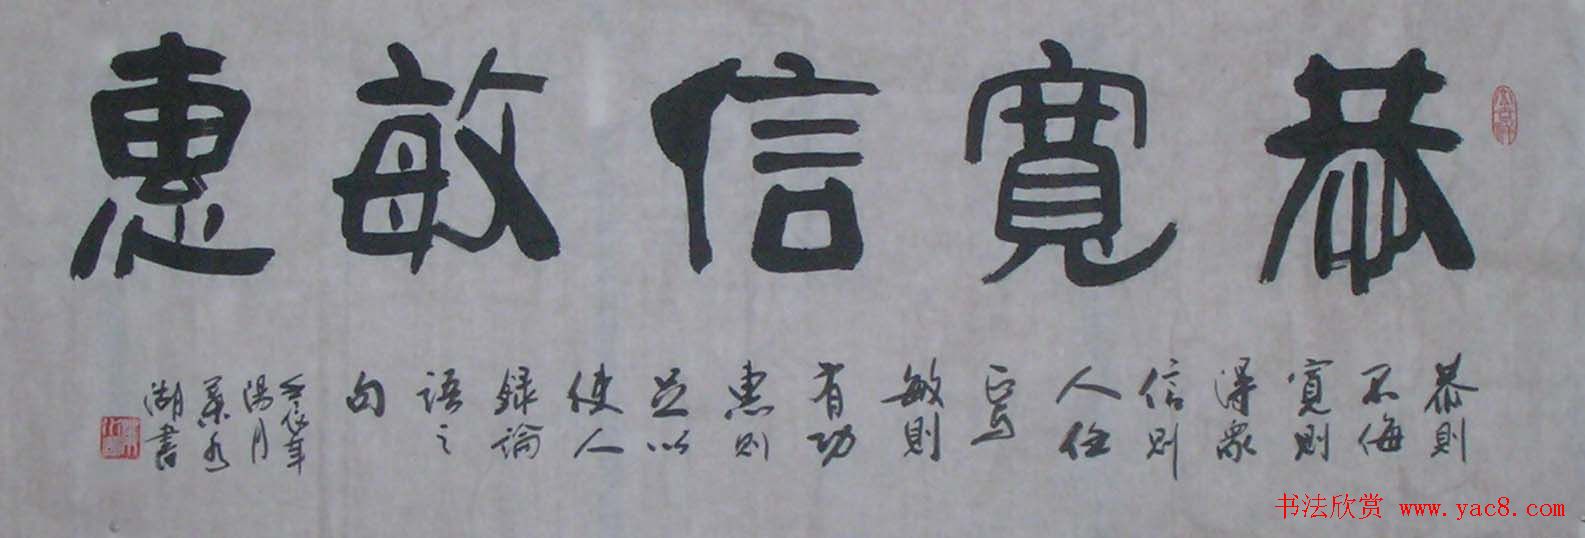 恭寬信敏惠
恭則
不侮
寬則
得眾
信則
人任
焉
敏則
有功
惠則
足以
使人
錄論
語之
句
年
陽月
湖書
书法欣赏 www.yac8.com